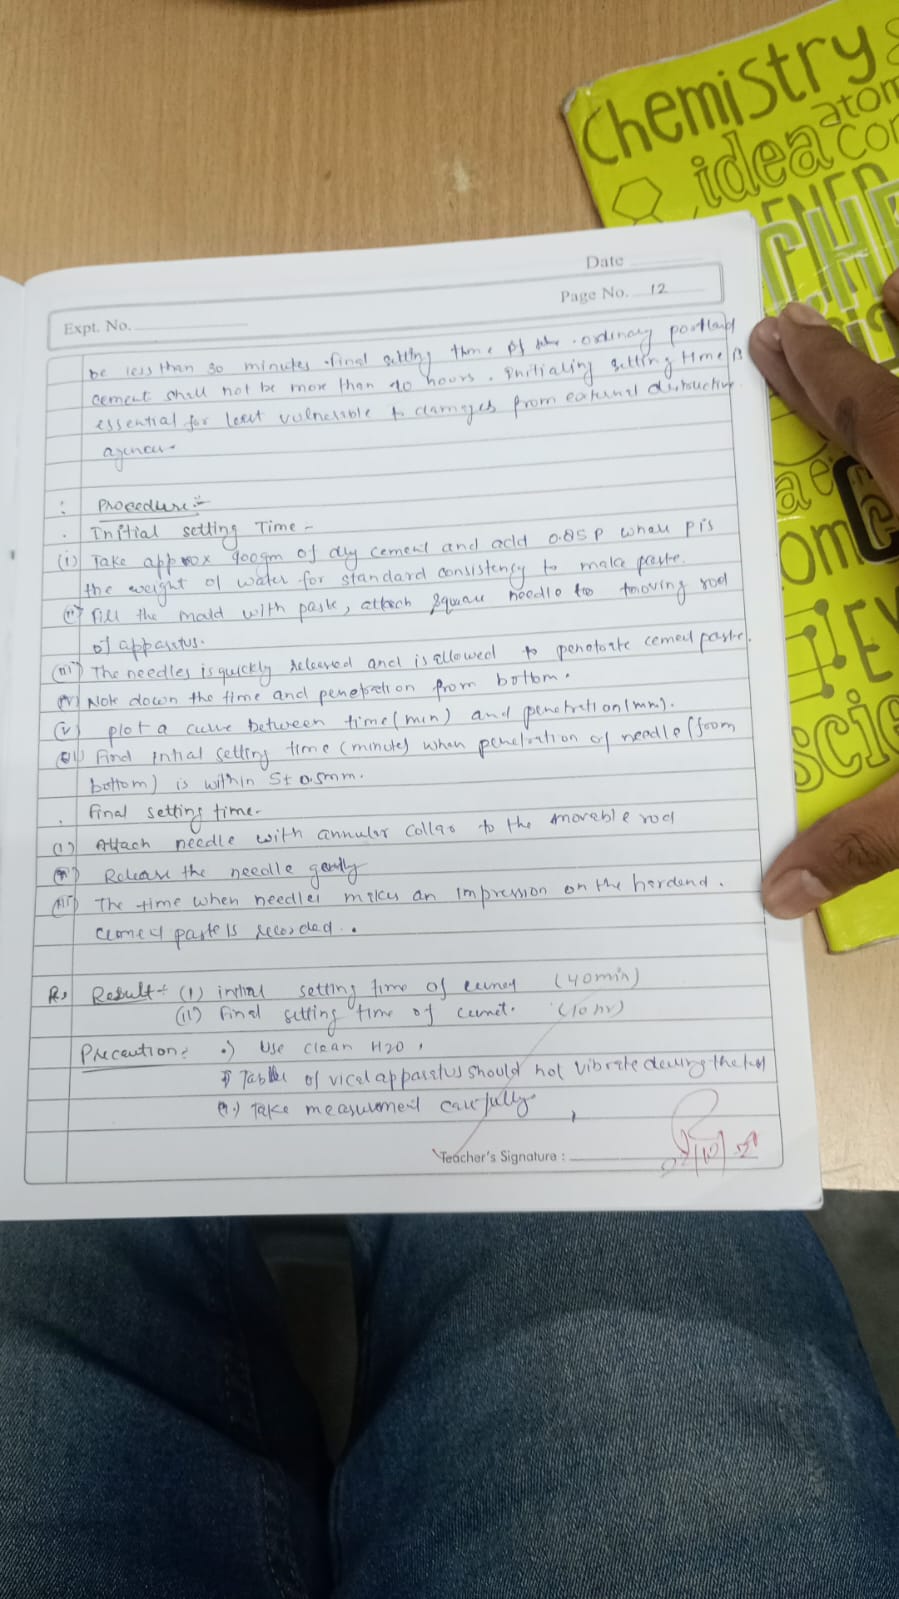 Chemistry
atom
idea
Date
Page No. 12
Expt. No.
be less than 30 minutes. final setting time of the ordinary portland
cement shall not be more than 10 hours. Initialing setting time is
essential for least vulnerable to damages from external distructive
agencies
: Procedure :-
. Initial setting Time -
(i) Take approx 400gm of dry cement and add 0.85 P when P is
the weight of water for standard consistency to make paste.
(ii) Fill the mold with paste, attach square needle to moving rod
of apparatus.
(iii) The needles is quickly released and is allowed to penetrate cement paste.
(iv) Note down the time and penetration from bottom.
(v) plot a curve between time (min) and penetration (mm).
(vi) Find intial setting time (minutes) when penetration of needle (from
bottom) is within 5± 0.5mm.
. final setting time-
(i) Attach needle with annular collar to the movable rod
(ii) Release the needle gently
(iii) The time when needles makes an impression on the hardend.
cement paste is recorded.
R. Result ÷ (i) initial setting time of cement (40min)
(ii) Final setting time of cement. (10 hr)
Precaution: .) Use clean H20.
of vicat apparatus should not vibrate during the test
Take measurement carefully
Teacher's Signature :